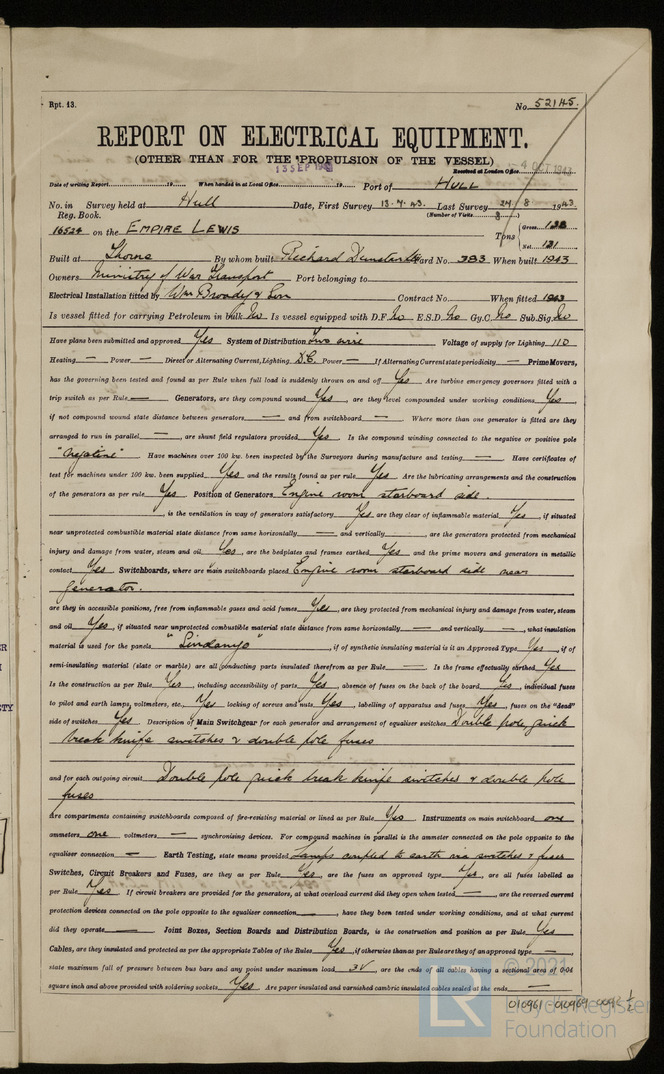 Rpt. 13.
No. 52145.
REPORT ON ELECTRICAL EQUIPMENT.
(OTHER THAN FOR THE PROPULSION OF THE VESSEL)
13 SEP 1943
Received at London Office 4 OCT 1943
Date of writing Report 19 When handed in at Local Office 19 Port of HULL
No. in Survey held at Hull Date, First Survey 13.7.43. Last Survey 24/8 1943
Reg. Book. (Number of Visits 8)
16524 on the EMPIRE LEWIS Tons { Gross
Net 121
Built at Thorne By whom built Richard Dunston Yard No. 383 When built 1943
Owners Ministry of War Transport Port belonging to
Electrical Installation fitted by Wm Broady & Son Contract No. When fitted 1943
Is vessel fitted for carrying Petroleum in bulk No Is vessel equipped with D.F. No E.S.D. No Gy.C. No Sub.Sig. No
Have plans been submitted and approved Yes System of Distribution Two wire Voltage of supply for Lighting 110
Heating — Power — Direct or Alternating Current, Lighting D.C. Power — If Alternating Current state periodicity — Prime Movers,
has the governing been tested and found as per Rule when full load is suddenly thrown on and off Yes Are turbine emergency governors fitted with a
trip switch as per Rule — Generators, are they compound wound Yes, are they level compounded under working conditions Yes,
if not compound wound state distance between generators — and from switchboard — Where more than one generator is fitted are they
arranged to run in parallel —, are shunt field regulators provided Yes Is the compound winding connected to the negative or positive pole
"Negative" Have machines over 100 kw. been inspected by the Surveyors during manufacture and testing — Have certificates of
test for machines under 100 kw. been supplied Yes and the results found as per rule Yes Are the lubricating arrangements and the construction
of the generators as per rule Yes Position of Generators Engine room starboard side.
, is the ventilation in way of generators satisfactory Yes are they clear of inflammable material Yes, if situated
near unprotected combustible material state distance from same horizontally — and vertically —, are the generators protected from mechanical
injury and damage from water, steam and oil Yes, are the bedplates and frames earthed Yes and the prime movers and generators in metallic
contact Yes Switchboards, where are main switchboards placed Engine room starboard side near
generator.
are they in accessible positions, free from inflammable gases and acid fumes Yes, are they protected from mechanical injury and damage from water, steam
and oil Yes, if situated near unprotected combustible material state distance from same horizontally — and vertically —, what insulation
material is used for the panels "Sindanyo", if of synthetic insulating material is it an Approved Type Yes, if of
semi-insulating material (slate or marble) are all conducting parts insulated therefrom as per Rule —. Is the frame effectually earthed Yes
Is the construction as per Rule Yes, including accessibility of parts Yes, absence of fuses on the back of the board Yes, individual fuses
to pilot and earth lamps, voltmeters, etc., Yes locking of screws and nuts Yes, labelling of apparatus and fuses Yes, fuses on the "dead"
side of switches Yes Description of Main Switchgear for each generator and arrangement of equaliser switches Double pole, quick
break knife switches & double pole fuses
and for each outgoing circuit Double pole quick break knife switches & double pole
fuses
Are compartments containing switchboards composed of fire-resisting material or lined as per Rule Yes Instruments on main switchboard one
ammeters one voltmeters — synchronising devices. For compound machines in parallel is the ammeter connected on the pole opposite to the
equaliser connection — Earth Testing, state means provided Lamps coupled to earth via switches & fuses
Switches, Circuit Breakers and Fuses, are they as per Rule Yes, are the fuses an approved type Yes, are all fuses labelled as
per Rule Yes If circuit breakers are provided for the generators, at what overload current did they open when tested —, are the reversed current
protection devices connected on the pole opposite to the equaliser connection —, have they been tested under working conditions, and at what current
did they operate — Joint Boxes, Section Boards and Distribution Boards, is the construction and position as per Rule Yes
Cables, are they insulated and protected as per the appropriate Tables of the Rules Yes, if otherwise than as per Rule are they of an approved type —
state maximum fall of pressure between bus bars and any point under maximum load 3V, are the ends of all cables having a sectional area of 0·04
square inch and above provided with soldering sockets Yes Are paper insulated and varnished cambric insulated cables sealed at the ends —
© 2021
Lloyd's Register
Foundation
LR
010961-010969-0092 ½